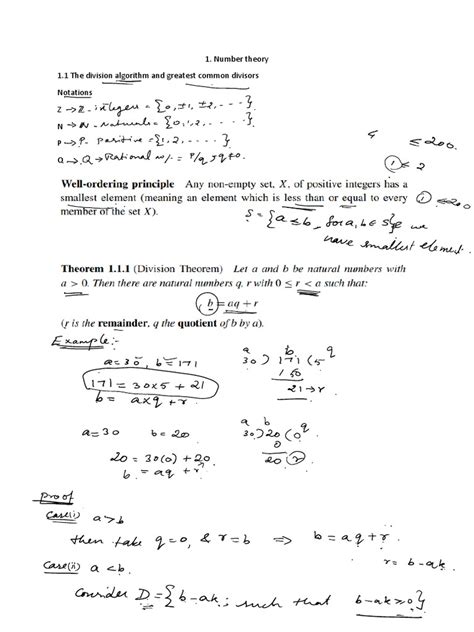 1. Number theory
1.1 The division algorithm and greatest common divisors
Notations
Z → ℤ - integers = {0, ±1, ±2, - - - -}.
N → ℕ - naturals = {0, 1, 2, - - - -}.
P → ℙ - Positive = {1, 2, - - - -}.
Q → Q → Rational no/. = P/q ; q≠0.
≤ 200.
1 ≤ 2
Well-ordering principle Any non-empty set, X, of positive integers has a
smallest element (meaning an element which is less than or equal to every
member of the set X).
1 ≤ 200
S = {a ≤ b, for a, b ∈ S} we
have smallest element.
Theorem 1.1.1 (Division Theorem) Let a and b be natural numbers with
a > 0. Then there are natural numbers q, r with 0 ≤ r < a such that:
b = aq + r
(r is the remainder, q the quotient of b by a).
Example:-
a = 30, b = 171
171 = 30×5 + 21
b = a×q + r
a b q
30) 171 (5
150
21 → r
a = 30 b = 20
20 = 30(0) + 20.
b = aq + r
a b q
30) 20 (0
0
20 r
Proof
Case(i) a > b
then take q = 0, & r = b ⇒ b = aq + r.
r = b - ak.
Case(ii) a < b.
Consider D = {b - ak ; such that b - ak ≥ 0}